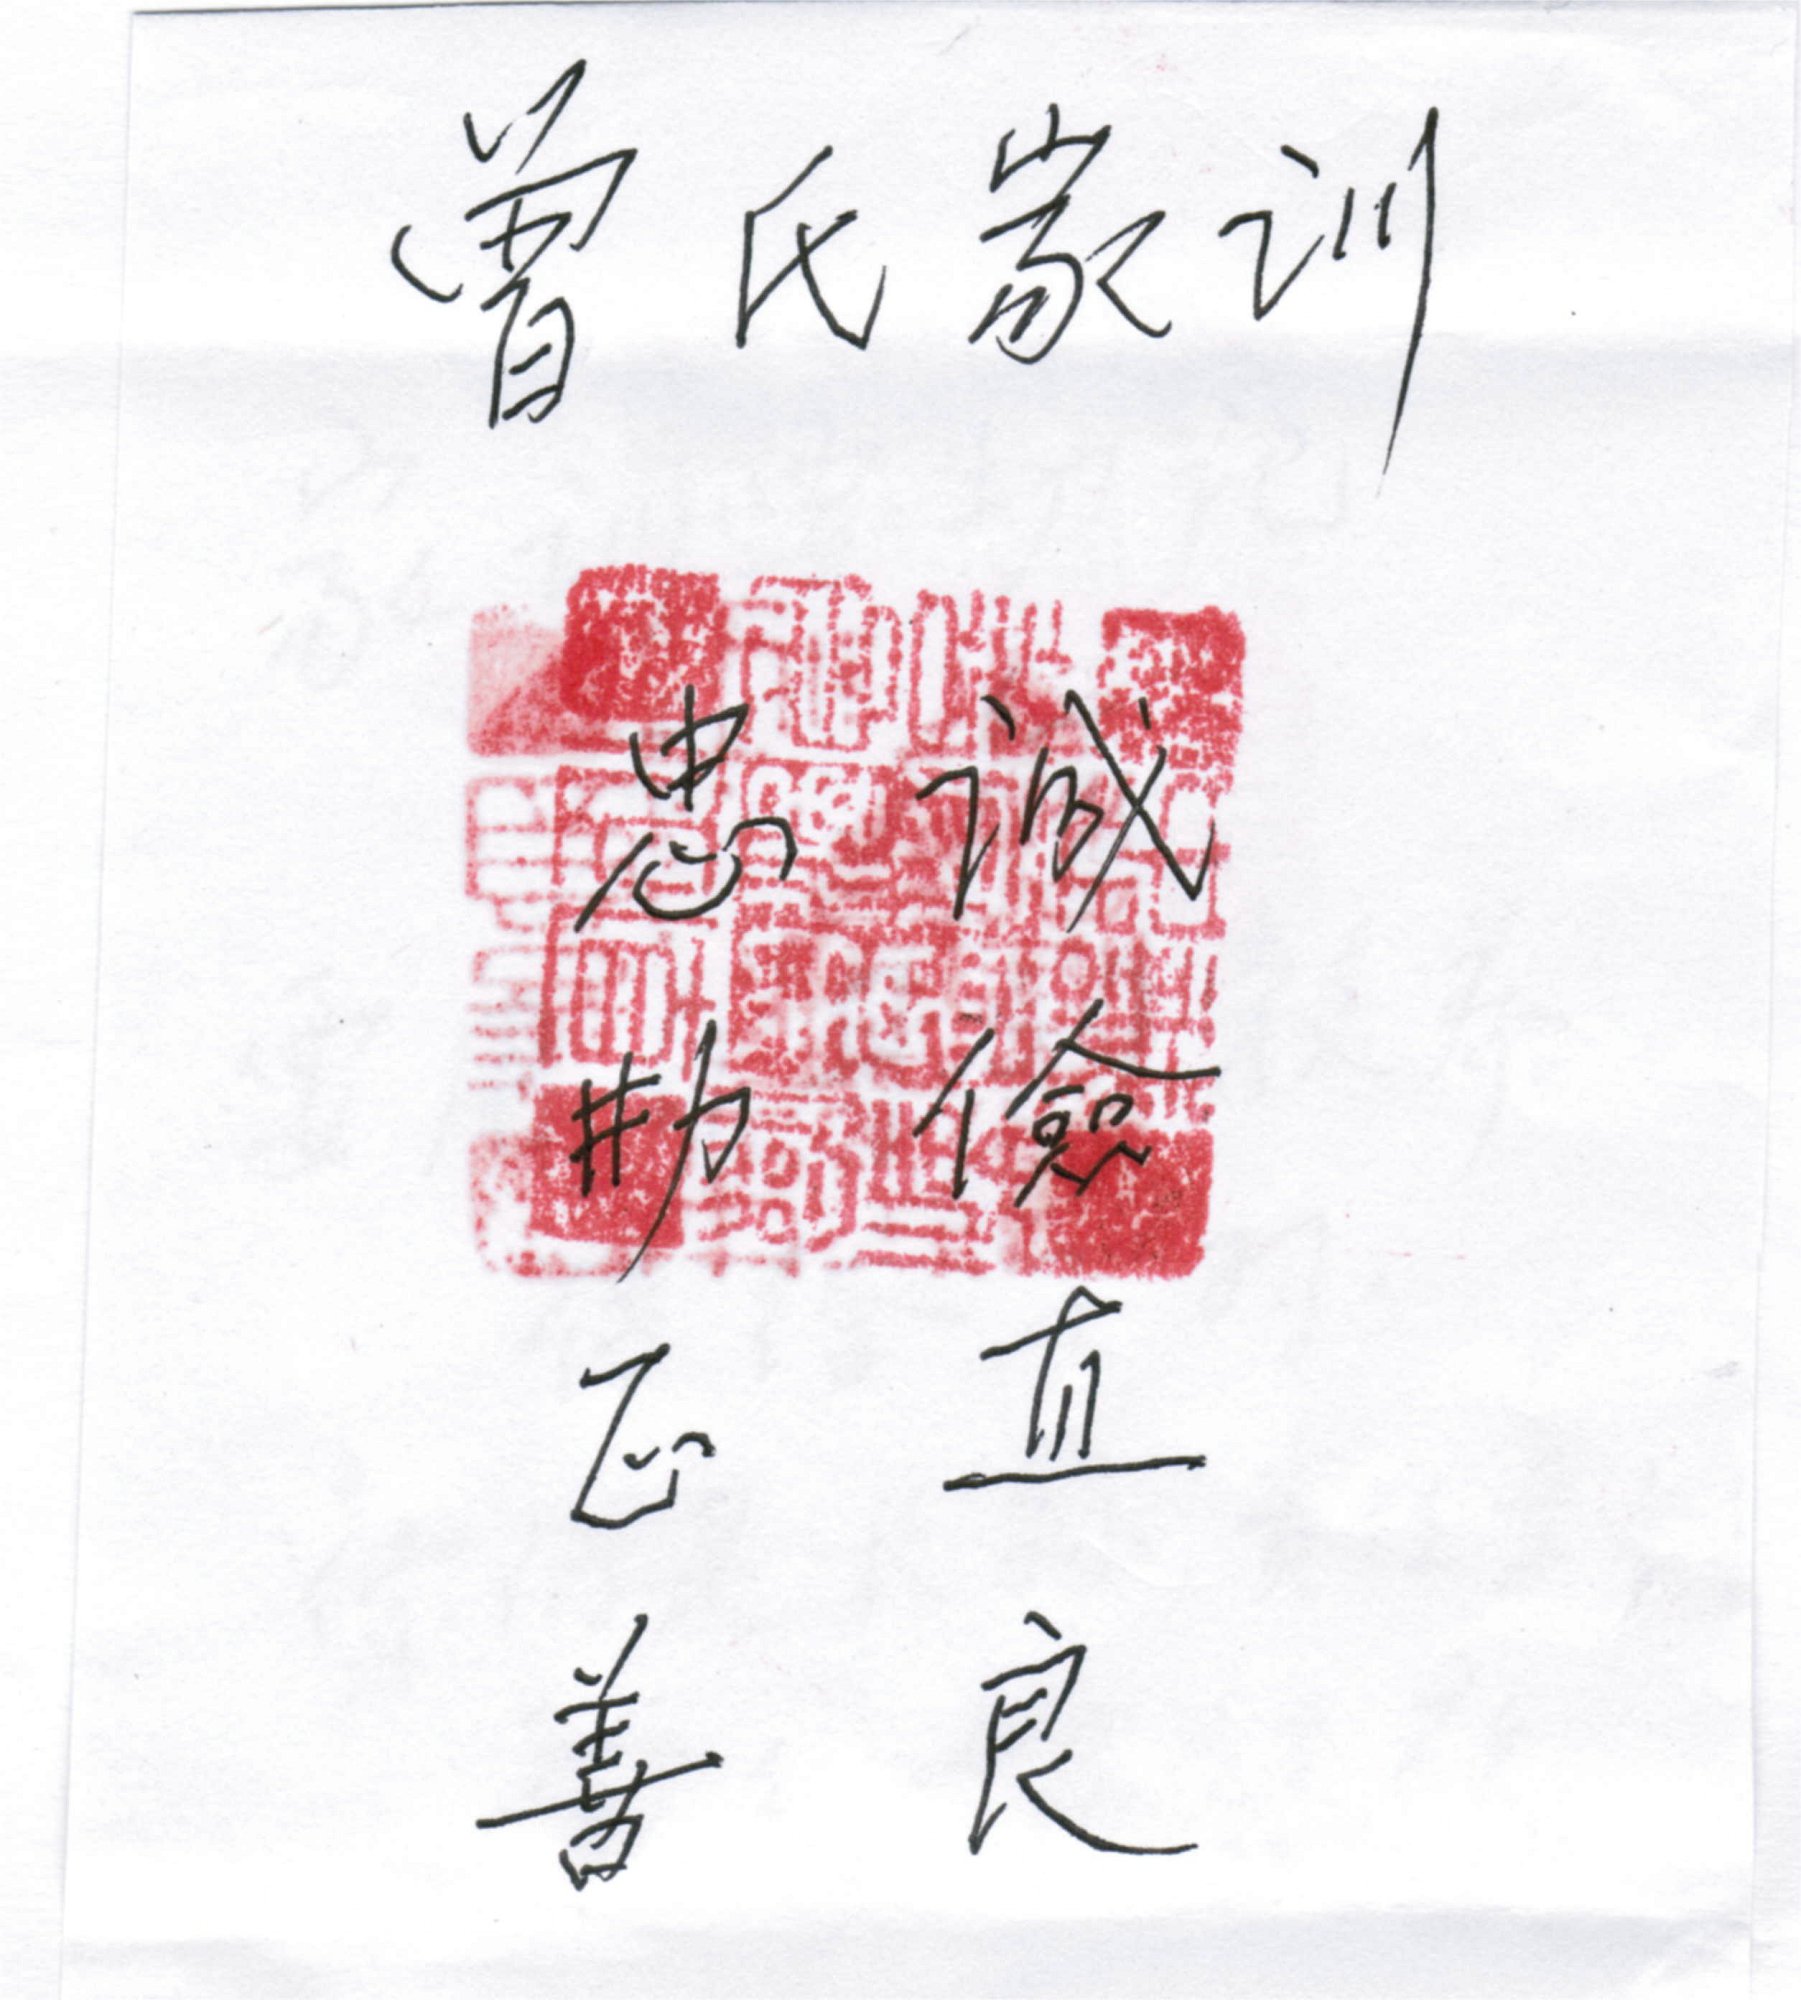 曾氏家训
忠诚
勤俭
正直
善良